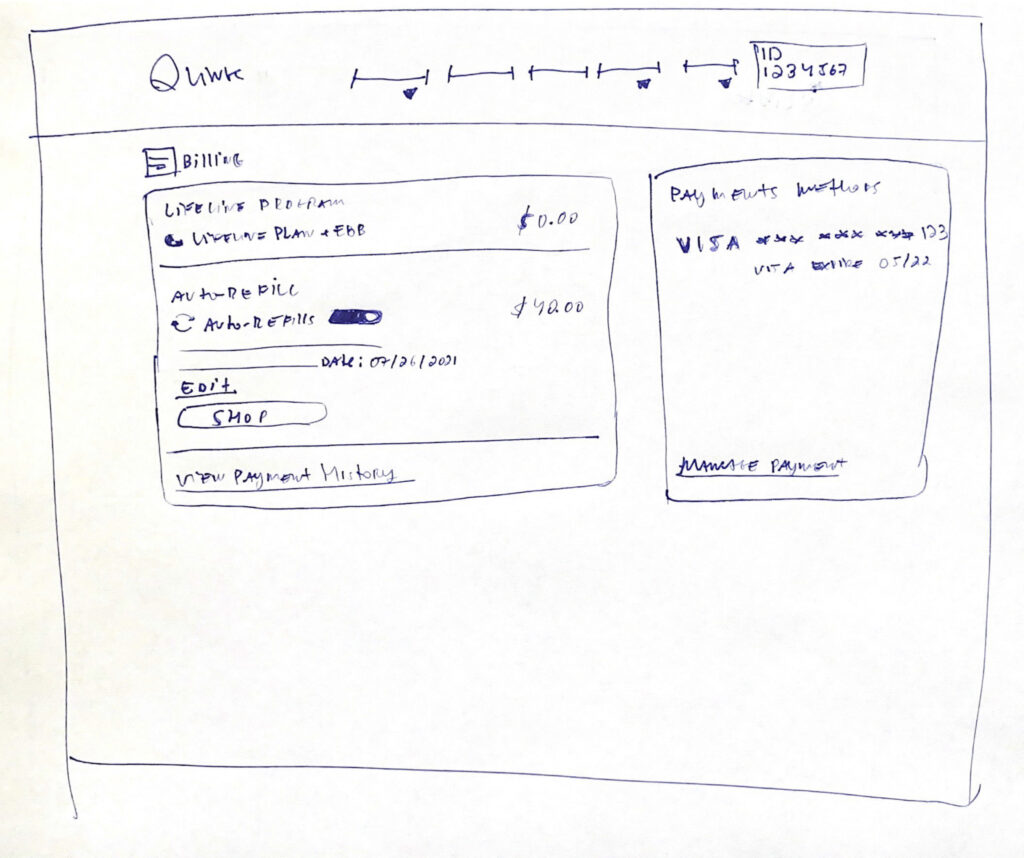 QLink
ID
1234567
Billing
LIFELINE PROGRAM
LIFELINE PLAN + EBB
$0.00
AUTO-REFILL
AUTO-REFILLS
$40.00
DATE: 07/26/2021
EDIT
SHOP
VIEW PAYMENT HISTORY
PAYMENTS METHODS
VISA *** *** *** 123
VISA EXPIRE 05/22
MANAGE PAYMENT